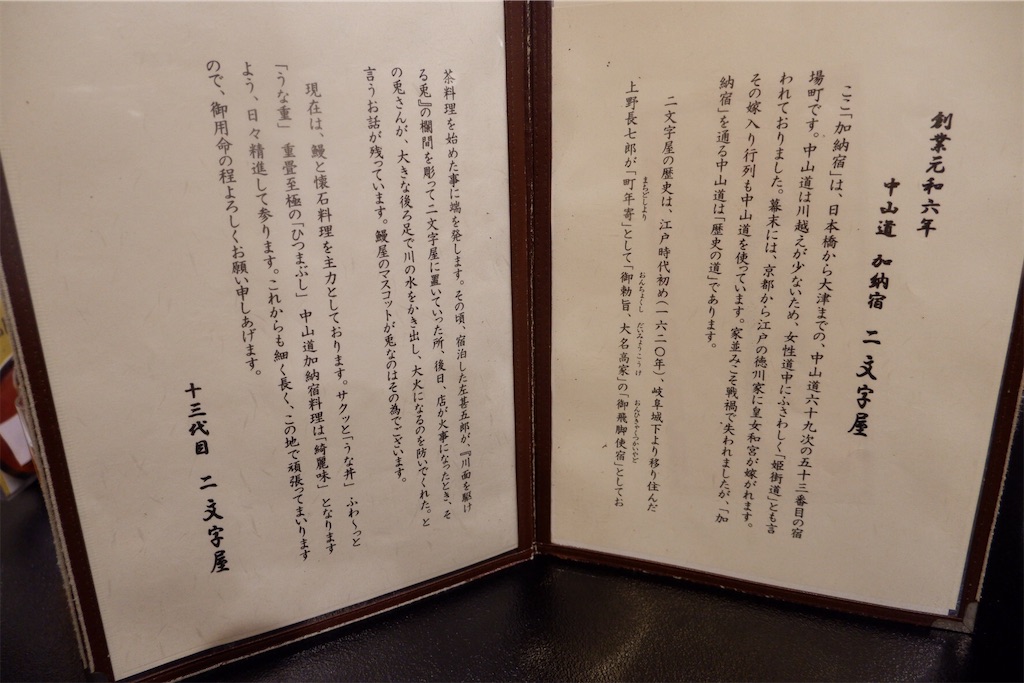 創業元和六年
中山道 加納宿 二文字屋
ここ「加納宿」は、日本橋から大津までの、中山道六十九次の五十三番目の宿
場町です。中山道は川越えが少ないため、女性道中にふさわしく「姫街道」とも言
われておりました。幕末には、京都から江戸の徳川家に皇女和宮が嫁がれます。
その嫁入り行列も中山道を使っています。家並みこそ戦禍で失われましたが、「加
納宿」を通る中山道は「歴史の道」であります。
二文字屋の歴史は、江戸時代初め(一六二〇年)、岐阜城下より移り住んだ
上野長七郎が「町年寄」として「御勅旨、大名高家」の「御飛脚使宿」としてお
まちどしより おんちょくし だいみょうこうけ おんひきゃくつかいやど
茶料理を始めた事に端を発します。その頃、宿泊した左甚五郎が、『川面を駆け
る兎』の欄間を彫って二文字屋に置いていった所、後日、店が火事になったとき、そ
の兎さんが、大きな後ろ足で川の水をかき出し、大火になるのを防いでくれた。と
言うお話が残っています。鰻屋のマスコットが兎なのはその為でございます。
現在は、鰻と懐石料理を主力としております。サクッと「うな丼」ふわ〜っと
「うな重」重畳至極の「ひつまぶし」中山道加納宿料理は「綺麗味」となります
よう、日々精進して参ります。これからも細く長く、この地で頑張ってまいります
ので、御用命の程よろしくお願い申しあげます。
十三代目 二文字屋